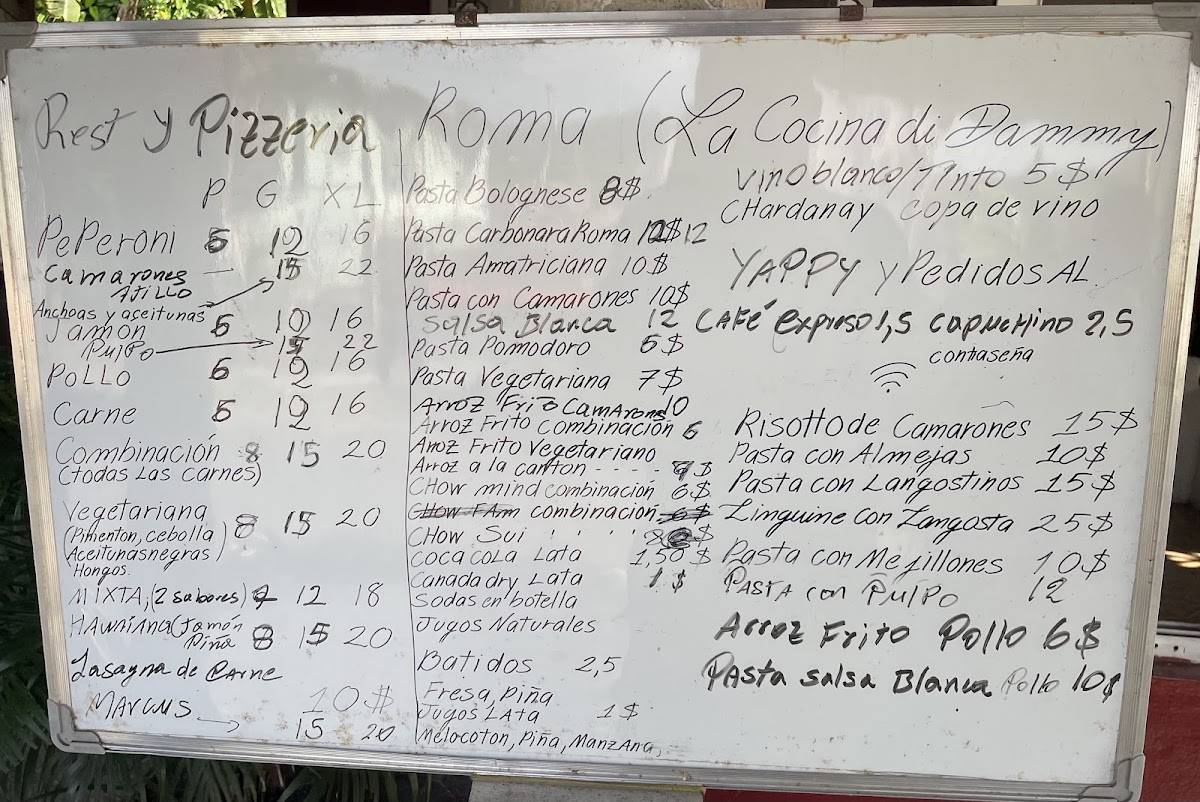 Rest y Pizzeria Roma (La Cocina di Dammy)
P G XL
PePeroni 6 12 16
Camarones — 15 22
AJILLO
Anchoas y aceitunas
Jamon 6 12 16
PulPo 15 22
POLLO 6 12 16
Carne 6 12 16
Combinación 8 15 20
(todas Las Carnes)
Vegetariana 8 15 20
(Pimenton, cebolla
Aceitunasnegras)
Hongos.
MIXTA, (2 sabores) 9 12 18
HAWAIANA (Jamón
Piña 8 15 20
Lasagna de Carne
10$
MARCUS 15 20
Pasta Bolognese 8$
Pasta Carbonara Roma 12$ 12
Pasta Amatriciana 10$
Pasta con Camarones 10$
Salsa Blanca 12
Pasta Pommodoro 6$
Pasta Vegetariana 7$
Arroz Frito CamArones 10
Arroz Frito Combinación 6
Arroz Frito Vegetariano
Arroz a la canton - - - - 7$
CHow mind combinación 6$
CHow FAm combinación 6$
CHow Sui . . . . $
coca coLa Lata 1,50 $
Canada dry Lata 1 $
Sodas en botella
Jugos Naturales
Batidos 2,5
Fresa, piña
Jugos LAta 1$
Melocoton, Piña, Manzana,
Vino blanco/Tinto 5$
CHardanay copa de vino
YAPPY y Pedidos AL.
CAFé expreso 1,5 capucHino 2,5
contraseña
Risotto de Camarones 15$
Pasta con Almejas 10$
Pasta con Langostinos 15$
Linguine Con Langosta 25$
Pasta con Mejillones 10$
PASTA con PulPo 12
Arroz Frito Pollo 6$
PAsta salsa Blanca Pollo 10$